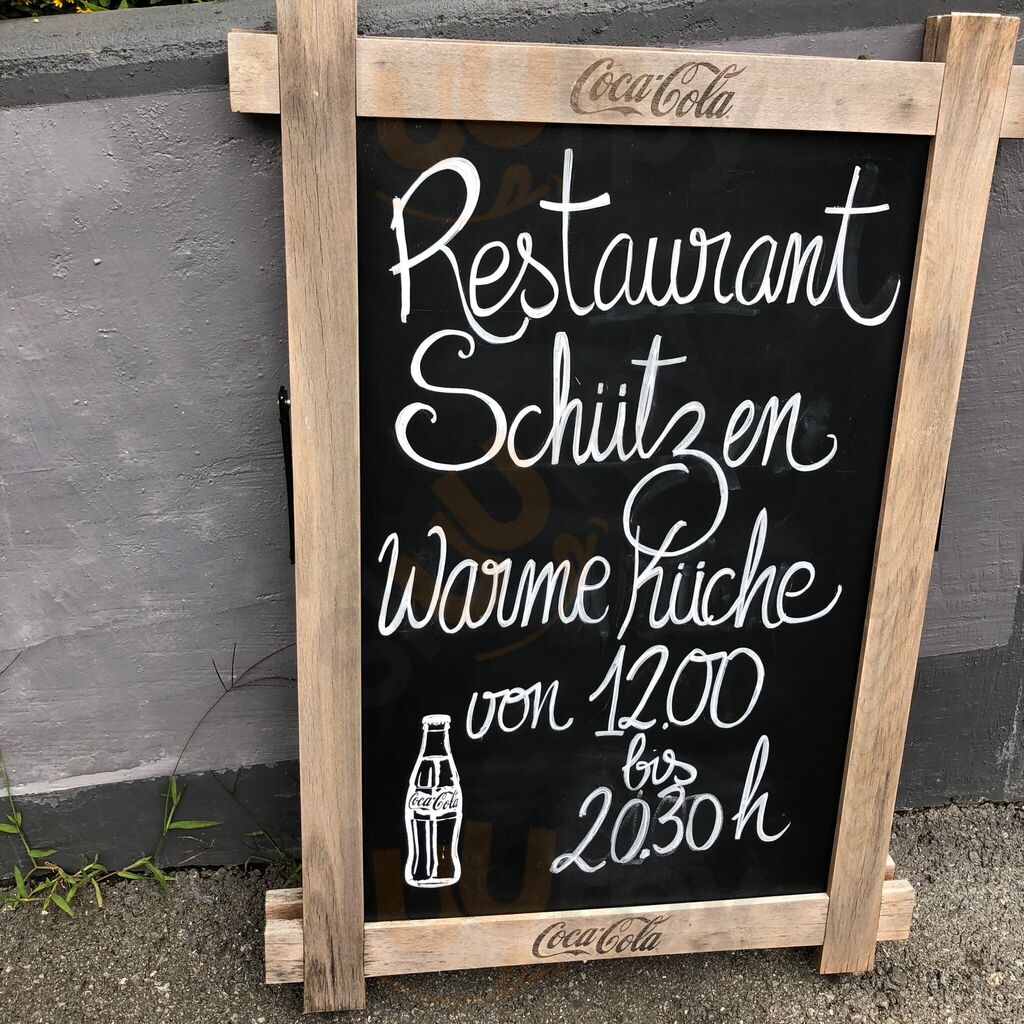 Coca-Cola
Restaurant
Schützen
Warme Küche
von 12.00
bis
20.30 h
Coca-Cola
Coca-Cola